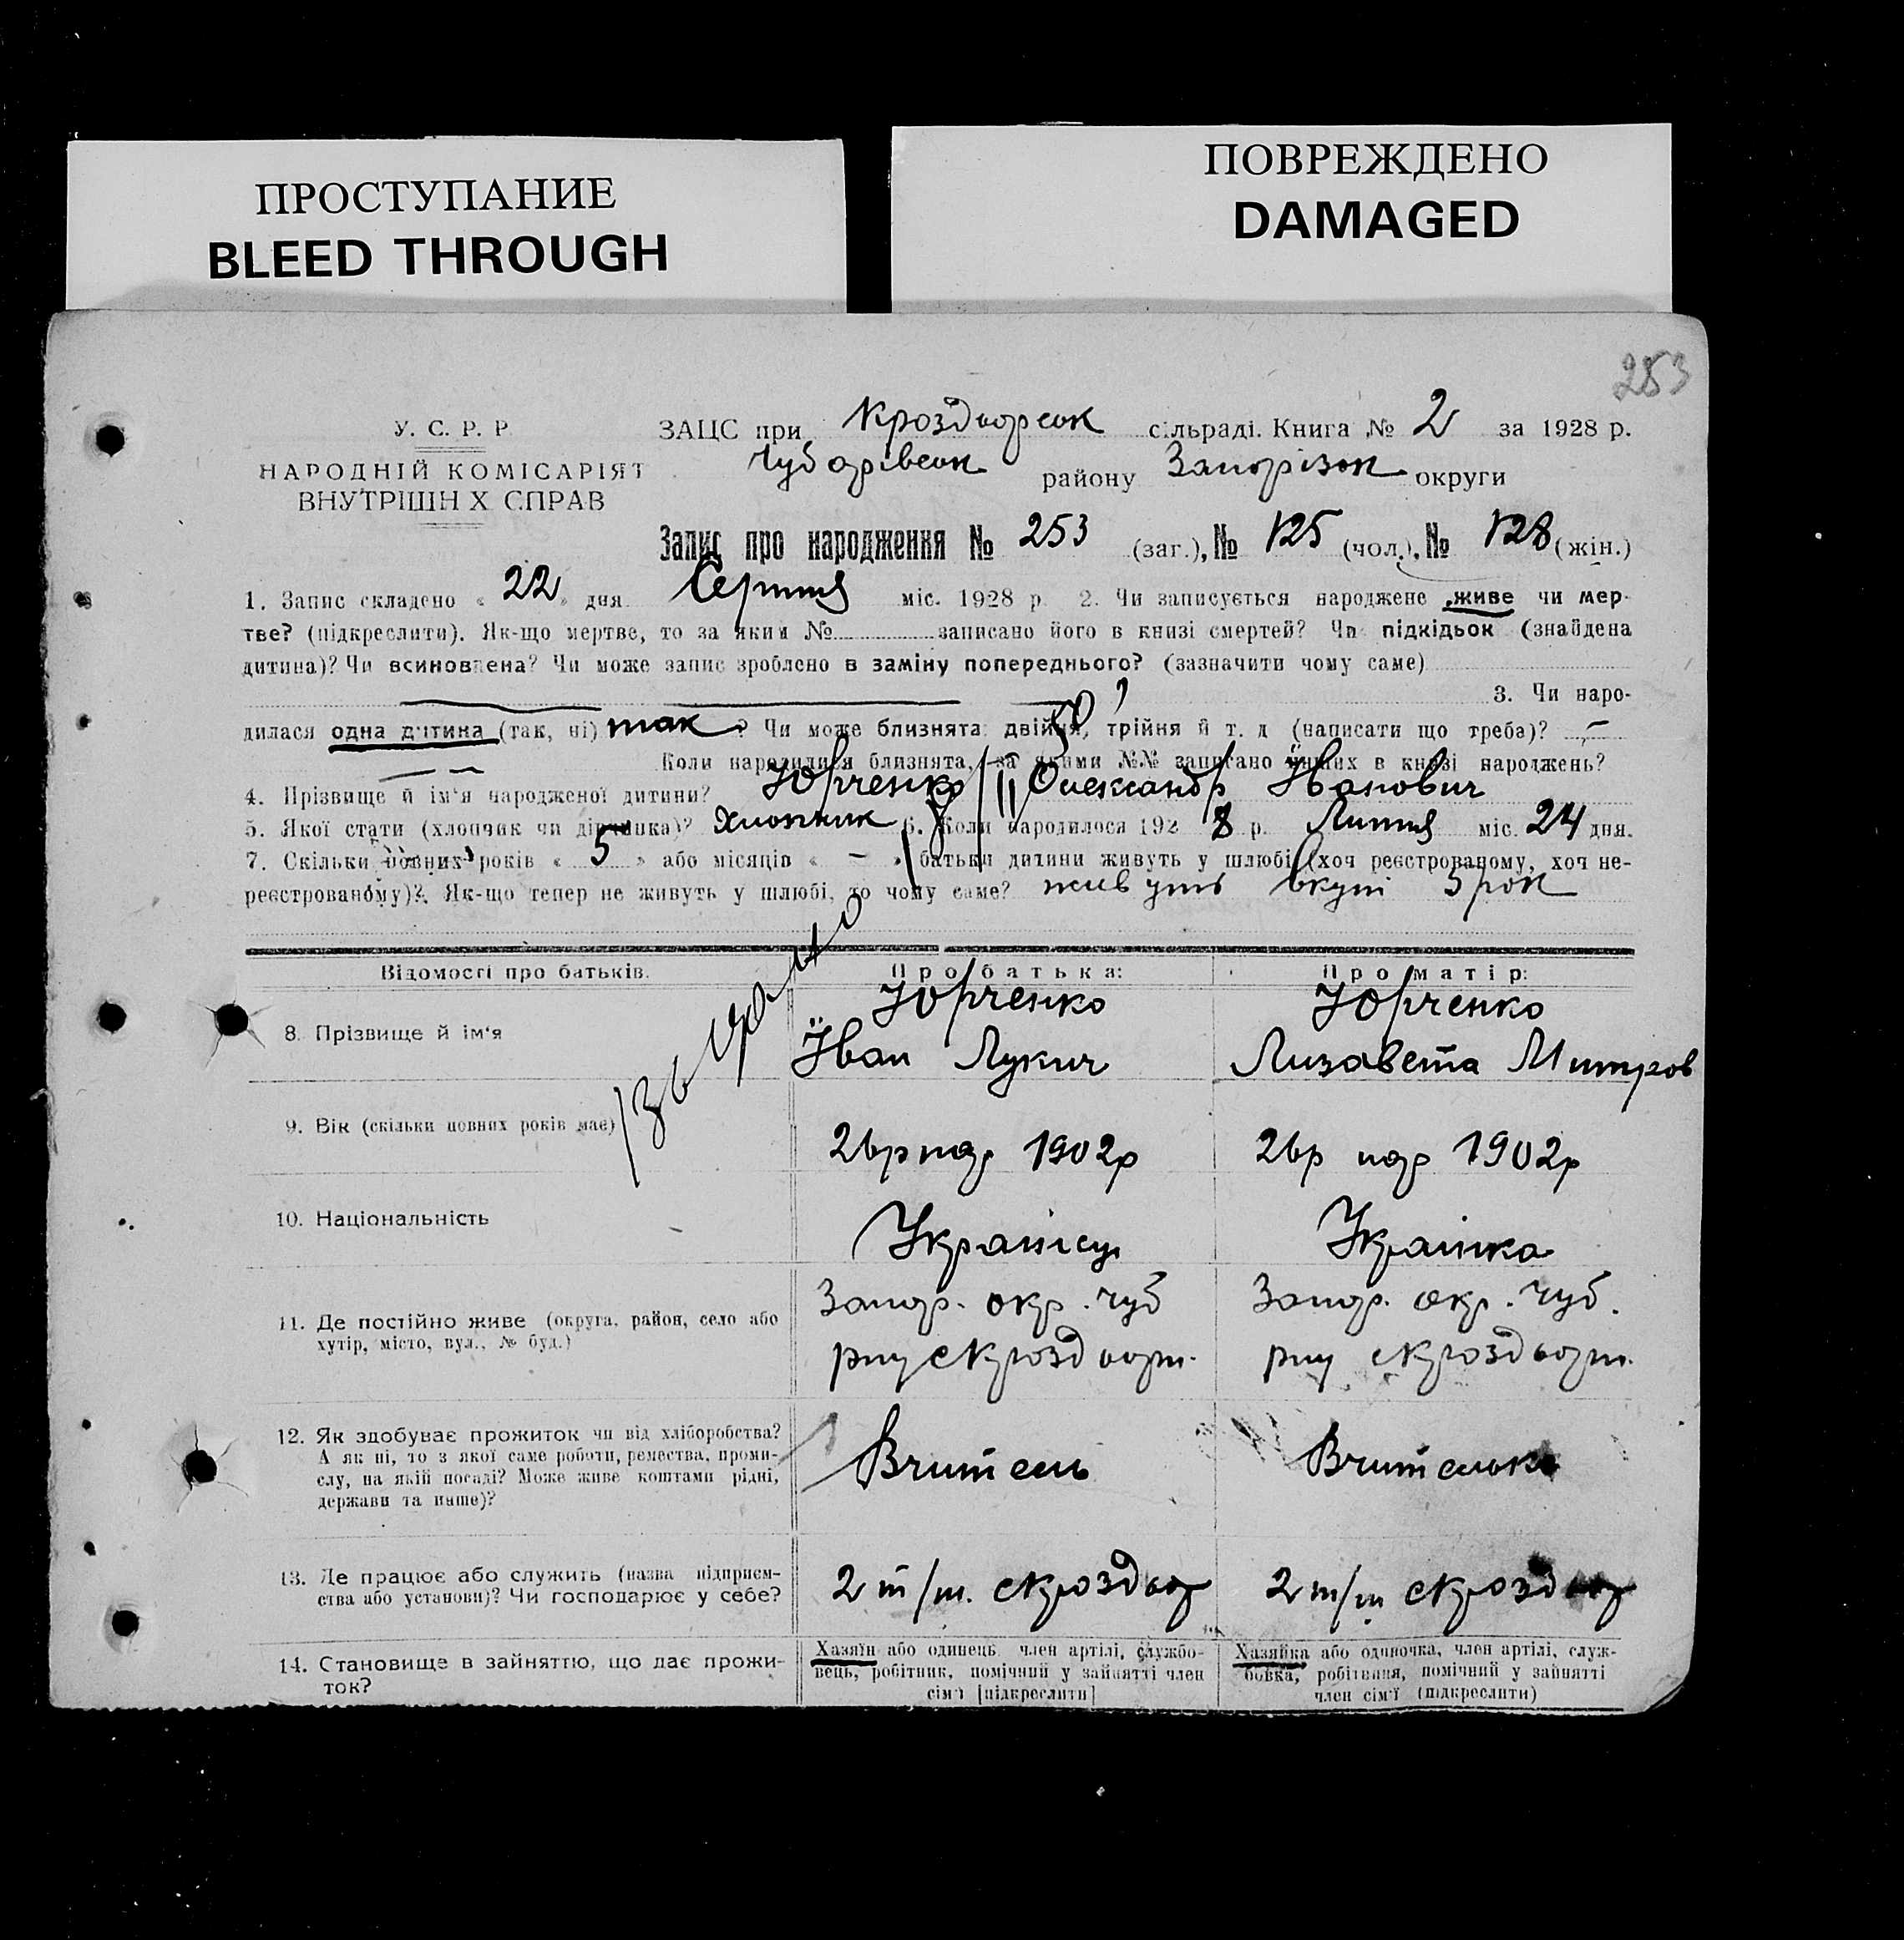 ПРОСТУПАНИЕ
BLEED THROUGH
ПОВРЕЖДЕНО
DAMAGED
253
У. С. Р. Р.
НАРОДНІЙ КОМІСАРІЯТ
ВНУТРІШН Х СПРАВ
ЗАЦС при Кроздворськ сільраді. Книга № 2 за 1928 р.
Чубарівськ району Запорізьк округи
Запис про народження № 253 (заг.), № 125 (чол.), № 128 (жін.)
1. Запис складено « 22 » дня Серпня міс. 1928 р. 2. Чи записується народжене живе чи мер-
тве? (підкреслити). Як-що мертве, то за яким № записано його в книзі смертей? Чи підкідьок (знайдена
дитина)? Чи всиновлена? Чи може запис зроблено в заміну попереднього? (зазначити чому саме)
3. Чи наро-
дилася одна дитина (так, ні) так ? Чи може близнята: двійня, трійня й т. д (написати що треба)? —
Коли народилися близнята, за якими №№ записано инших в книзі народжень?
4. Прізвище й ім'я народженої дитини? Юрченко Олександр Іванович
5. Якої стати (хлопчик чи дівчинка)? Хлопчик 6. Коли народилося 192 8 р. Липня міс. 24 дня.
7. Скільки повних років « 5 » або місяців « — » батьки дитини живуть у шлюбі (хоч реєстрованому, хоч не-
реєстрованому)? Як-що тепер не живуть у шлюбі, то чому саме? живуть вкупі 5 рок
Відомості про батьків.
Про батька:
Про матір:
8. Прізвище й ім'я
Юрченко
Іван Лукич
Юрченко
Лизавета Митров
9. Вік (скільки повних років має)
26р нар 1902р
26р нар 1902р
10. Національність
Українець
Українка
11. Де постійно живе (округа, район, село або
хутір, місто, вул., № буд.)
Запор. окр. Чуб
рну с Кроздворт.
Запор. окр. Чуб.
рну с Кроздворт.
12. Як здобуває прожиток чи від хліборобства?
А як ні, то з якої саме роботи, ремества, проми-
слу, на якій посаді? Може живе коштами рідні,
держави та инше)?
Вчитель
Вчителька
13. Де працює або служить (назва підприєм-
ства або установи)? Чи господарює у себе?
2 т/ш. с Кроздвор
2 т/ш с Кроздвор
14. Становище в зайняттю, що дає прожи-
ток?
Хазяїн або одинець, член артілі, службо-
вець, робітник, помічний у зайнятті член
сім'ї [підкреслити]
Хазяйка або одиночка, член артілі, служ-
бовка, робітниця, помічний у зайнятті
член сім'ї (підкреслити)